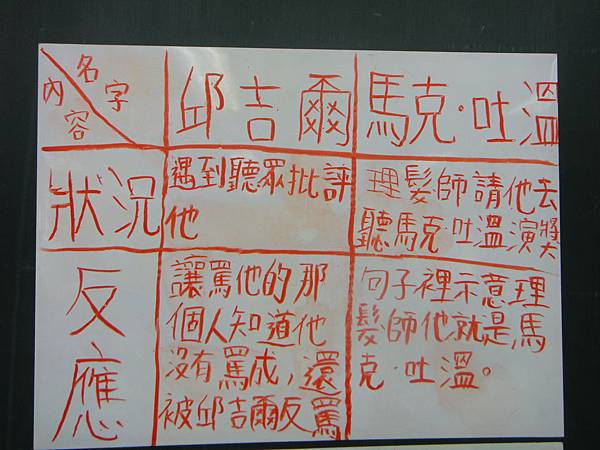 名字
內容
邱吉爾
馬克·吐溫
狀況
遇到聽眾批評
他
理髮師請他去
聽馬克·吐溫演獎
反應
讓罵他的那
個人知道他
沒有罵成,還
被邱吉爾反罵
句子裡示意理
髮師他就是馬
克·吐溫。